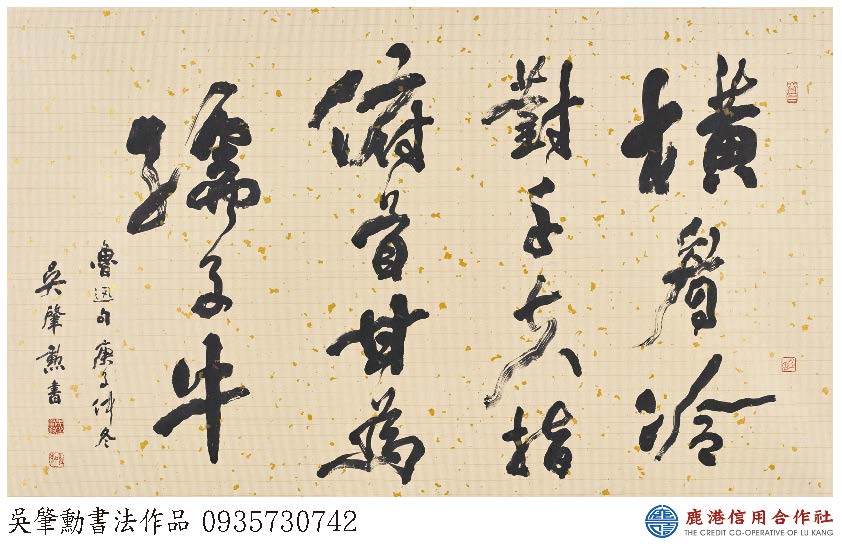 橫眉冷
對千夫指
俯首甘為
孺子牛
魯迅句 庚子仲冬
吳肇勳書
吳肇勳書法作品 0935730742
鹿港信用合作社
THE CREDIT CO-OPERATIVE OF LU KANG